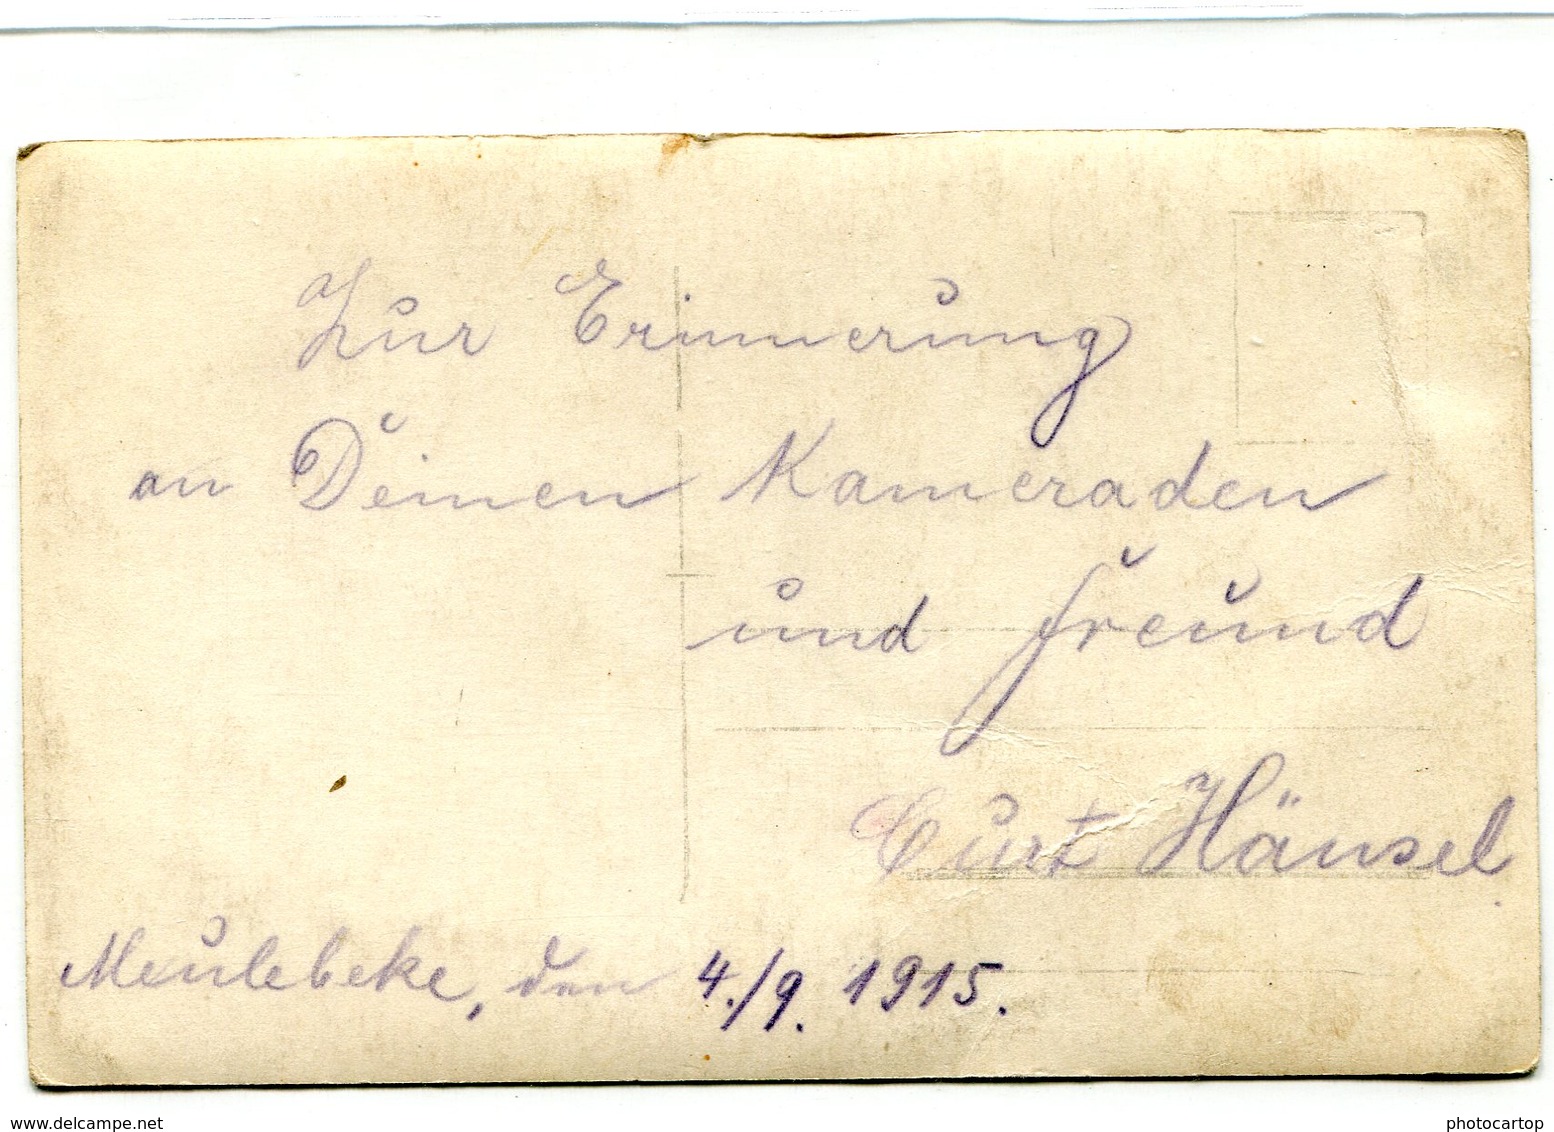 Zur Erinnerung
an Deinen Kameraden
und Freund
Curt Hänsel.
Meulebeke, den 4./9. 1915.
www.delcampe.net
photocartop